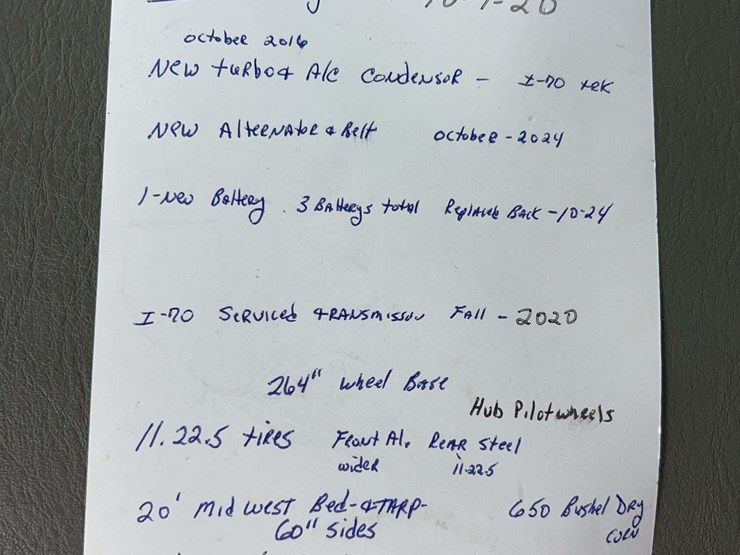 10-1-20
October 2016
New turbo & A/c Condensor - I-70 tek
New Alternator & Belt October - 2024
1-New Battery . 3 Batterys total Replaced Back -10-24
I-70 Serviced transmisson Fall - 2020
264" wheel Base
Hub Pilot wheels
11.22.5 tires Front Al. Rear Steel
wider 11-22.5
20' Midwest Bed-&TARP- 650 Bushel Dry
60" sides Corn